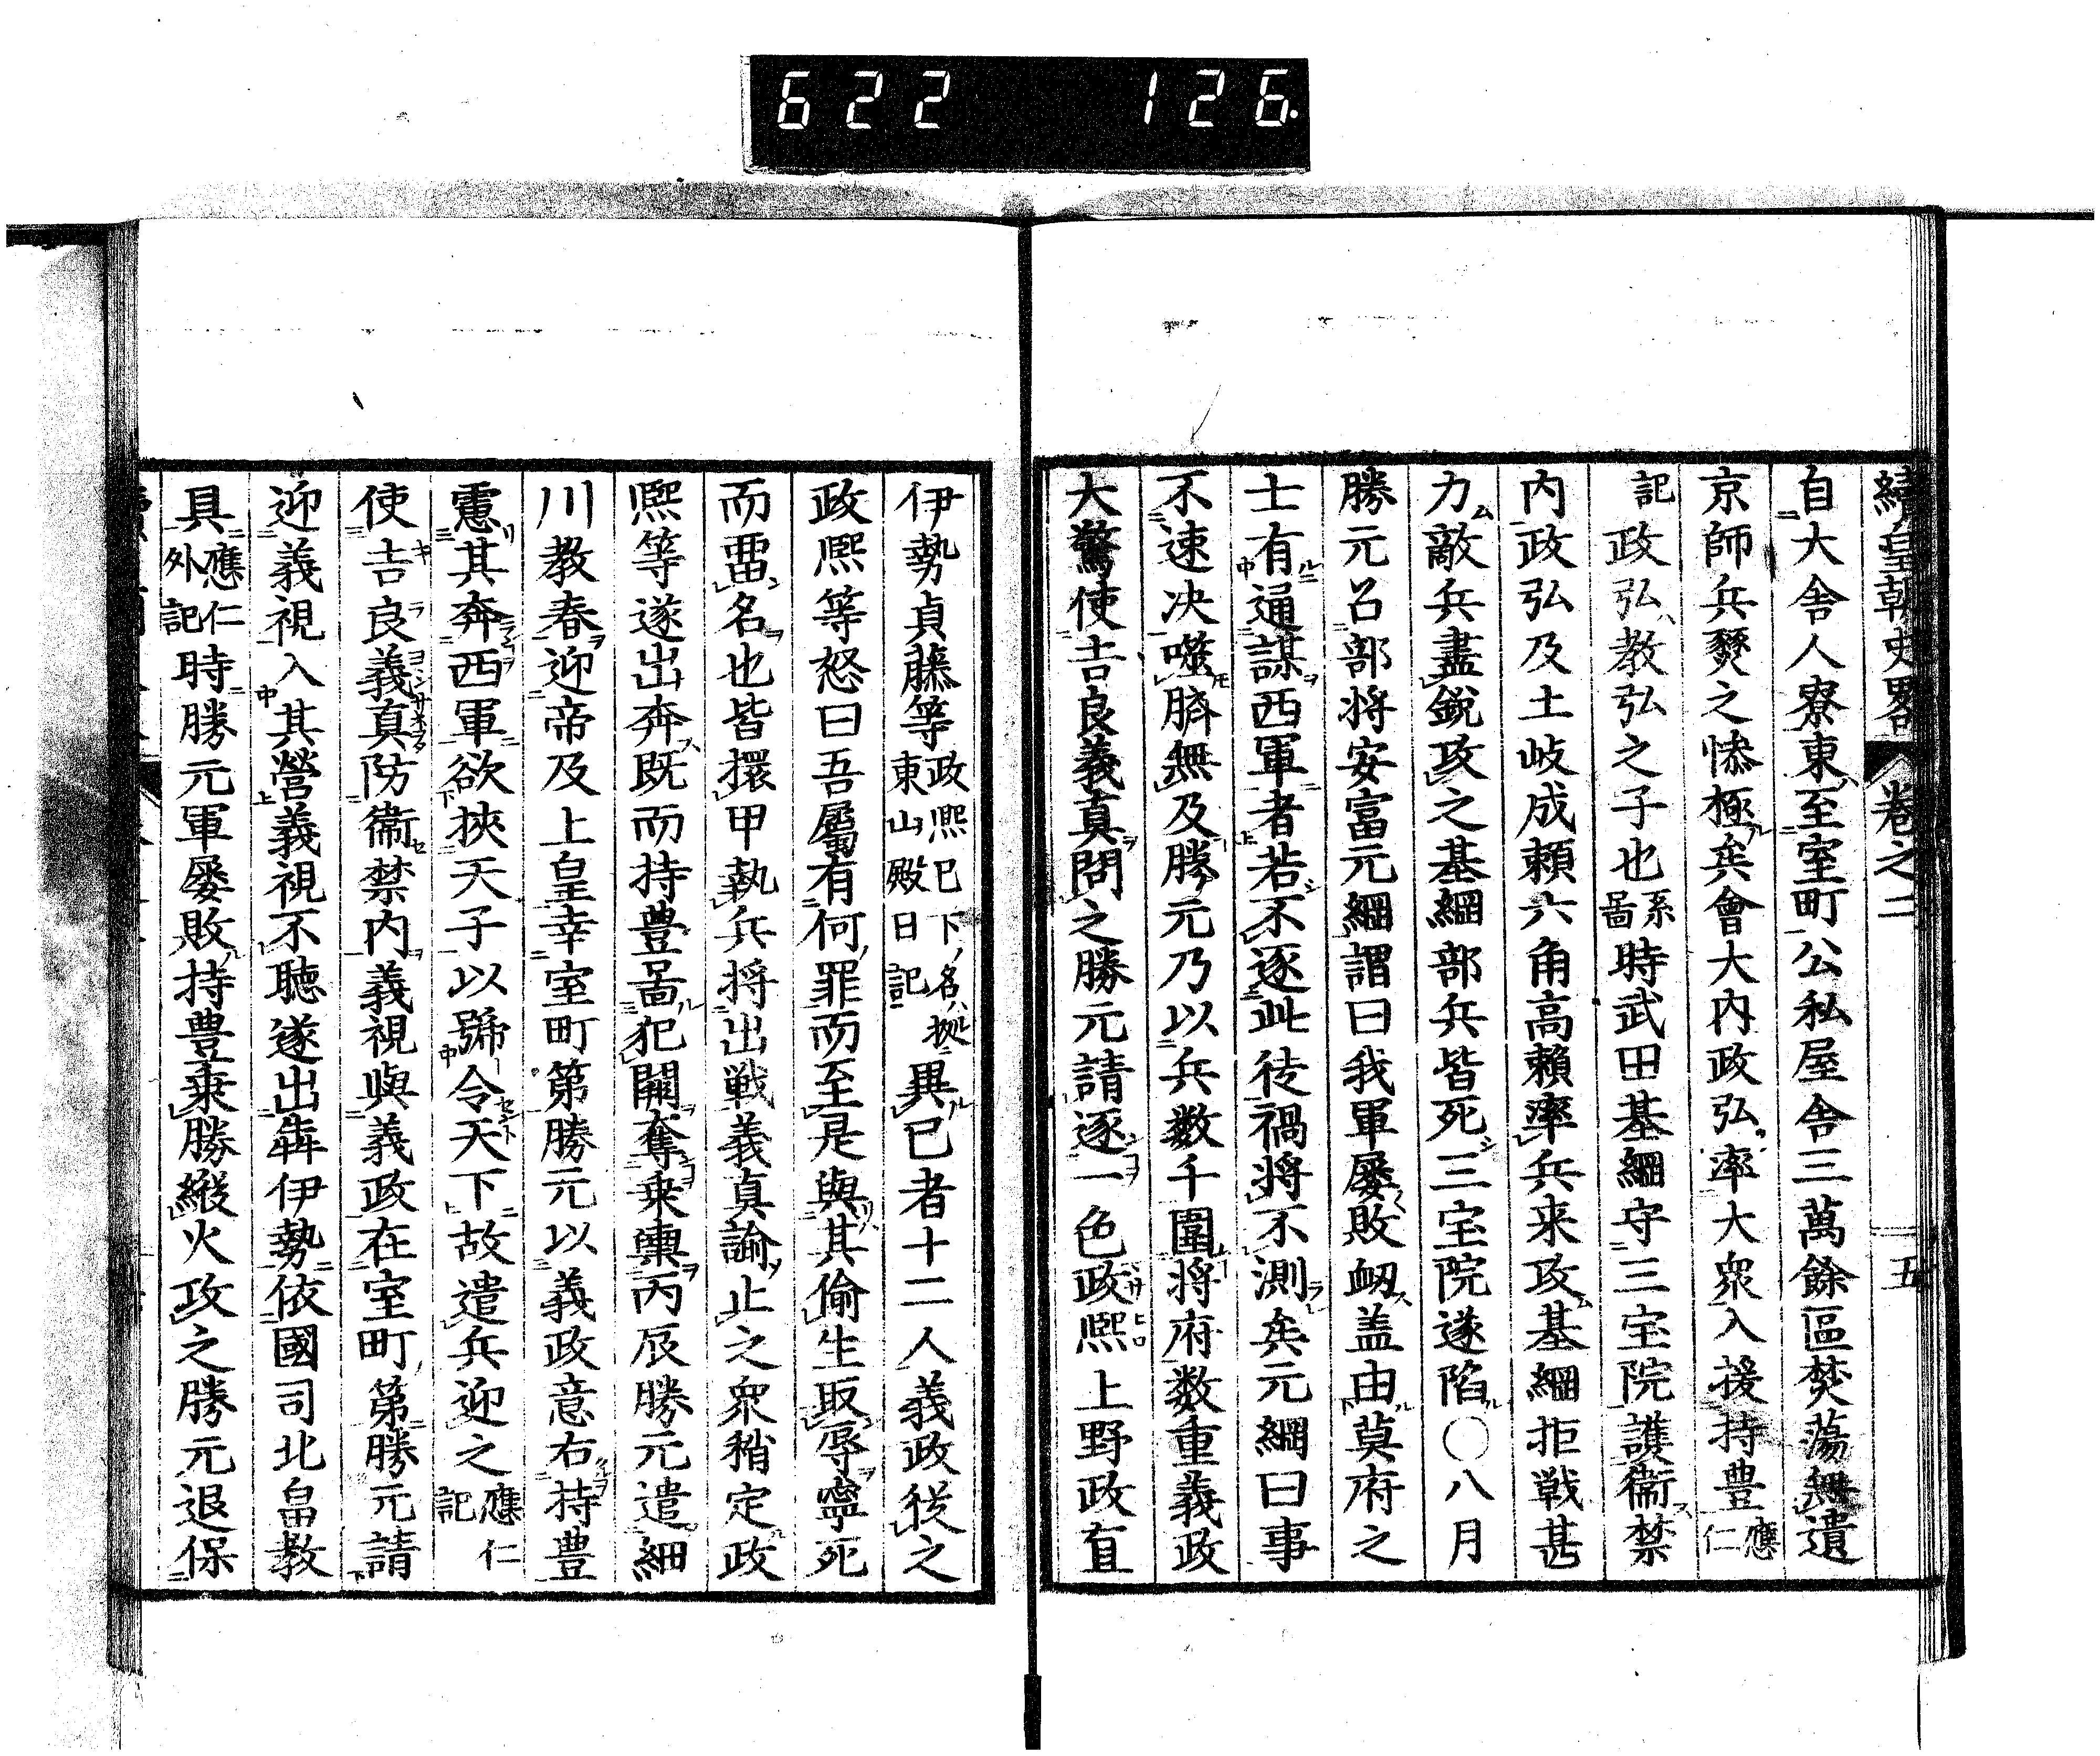 622 126.
續皇朝史畧 卷之二 五
自大舎人寮東至室町公私屋舎三萬餘區焚蕩無遺
京師兵燹之慘極矣會大内政弘率大衆入援持豊應仁
記政弘教弘之子也系啚時武田基綱守三宝院護衞禁
内政弘及土岐成頼六角高頼率兵来攻基綱拒戦甚
力敵兵盡銳攻之基綱部兵皆死三宝院遂陷〇八月
勝元召部将安富元綱謂曰我軍屡敗衂盖由莫府之
士有通謀西軍者若不逐此徒禍将不測矣元綱曰事
不速决噬臍無及勝元乃以兵数千圍将府数重義政
大驚使吉良義真問之勝元請逐一色政熙上野政直
伊勢貞藤等政熙已下名拠東山殿日記異已者十二人義政從之
政熙等怒曰吾屬有何罪而至是與其偷生取辱寧死
而畱名也皆擐甲執兵将出戦義真諭止之衆稍定政
熙等遂出奔既而持豊啚犯闕奪乗輿丙辰勝元遣細
川教春迎帝及上皇幸室町第勝元以義政意右持豊
慮其奔西軍欲挾天子以號令天下故遣兵迎之應仁記
使吉良義真防衞禁内義視與義政在室町第勝元請
迎義視入其營義視不聽遂出犇伊勢依國司北畠教
具應仁外記時勝元軍屡敗持豊乗勝縱火攻之勝元退保